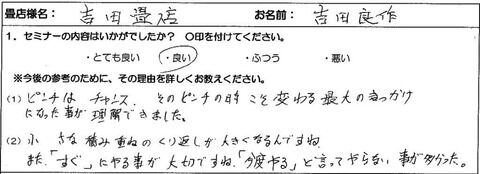 畳店様名： 吉田畳店 お名前： 吉田良作
1．セミナーの内容はいかがでしたか？ ○印を付けてください。
・とても良い ・良い ・ふつう ・悪い
※今後の参考のために、その理由を詳しくお教えください。
(1) ピンチは チャンス、そのピンチの時こそ変わる最大のきっかけ
になった事が理解できました。
(2) 小さな積み重ねのくり返しが大きくなるんですね
また、「すぐ」にやる事が大切ですね、「今度やる」と言ってやらない事が多かった。